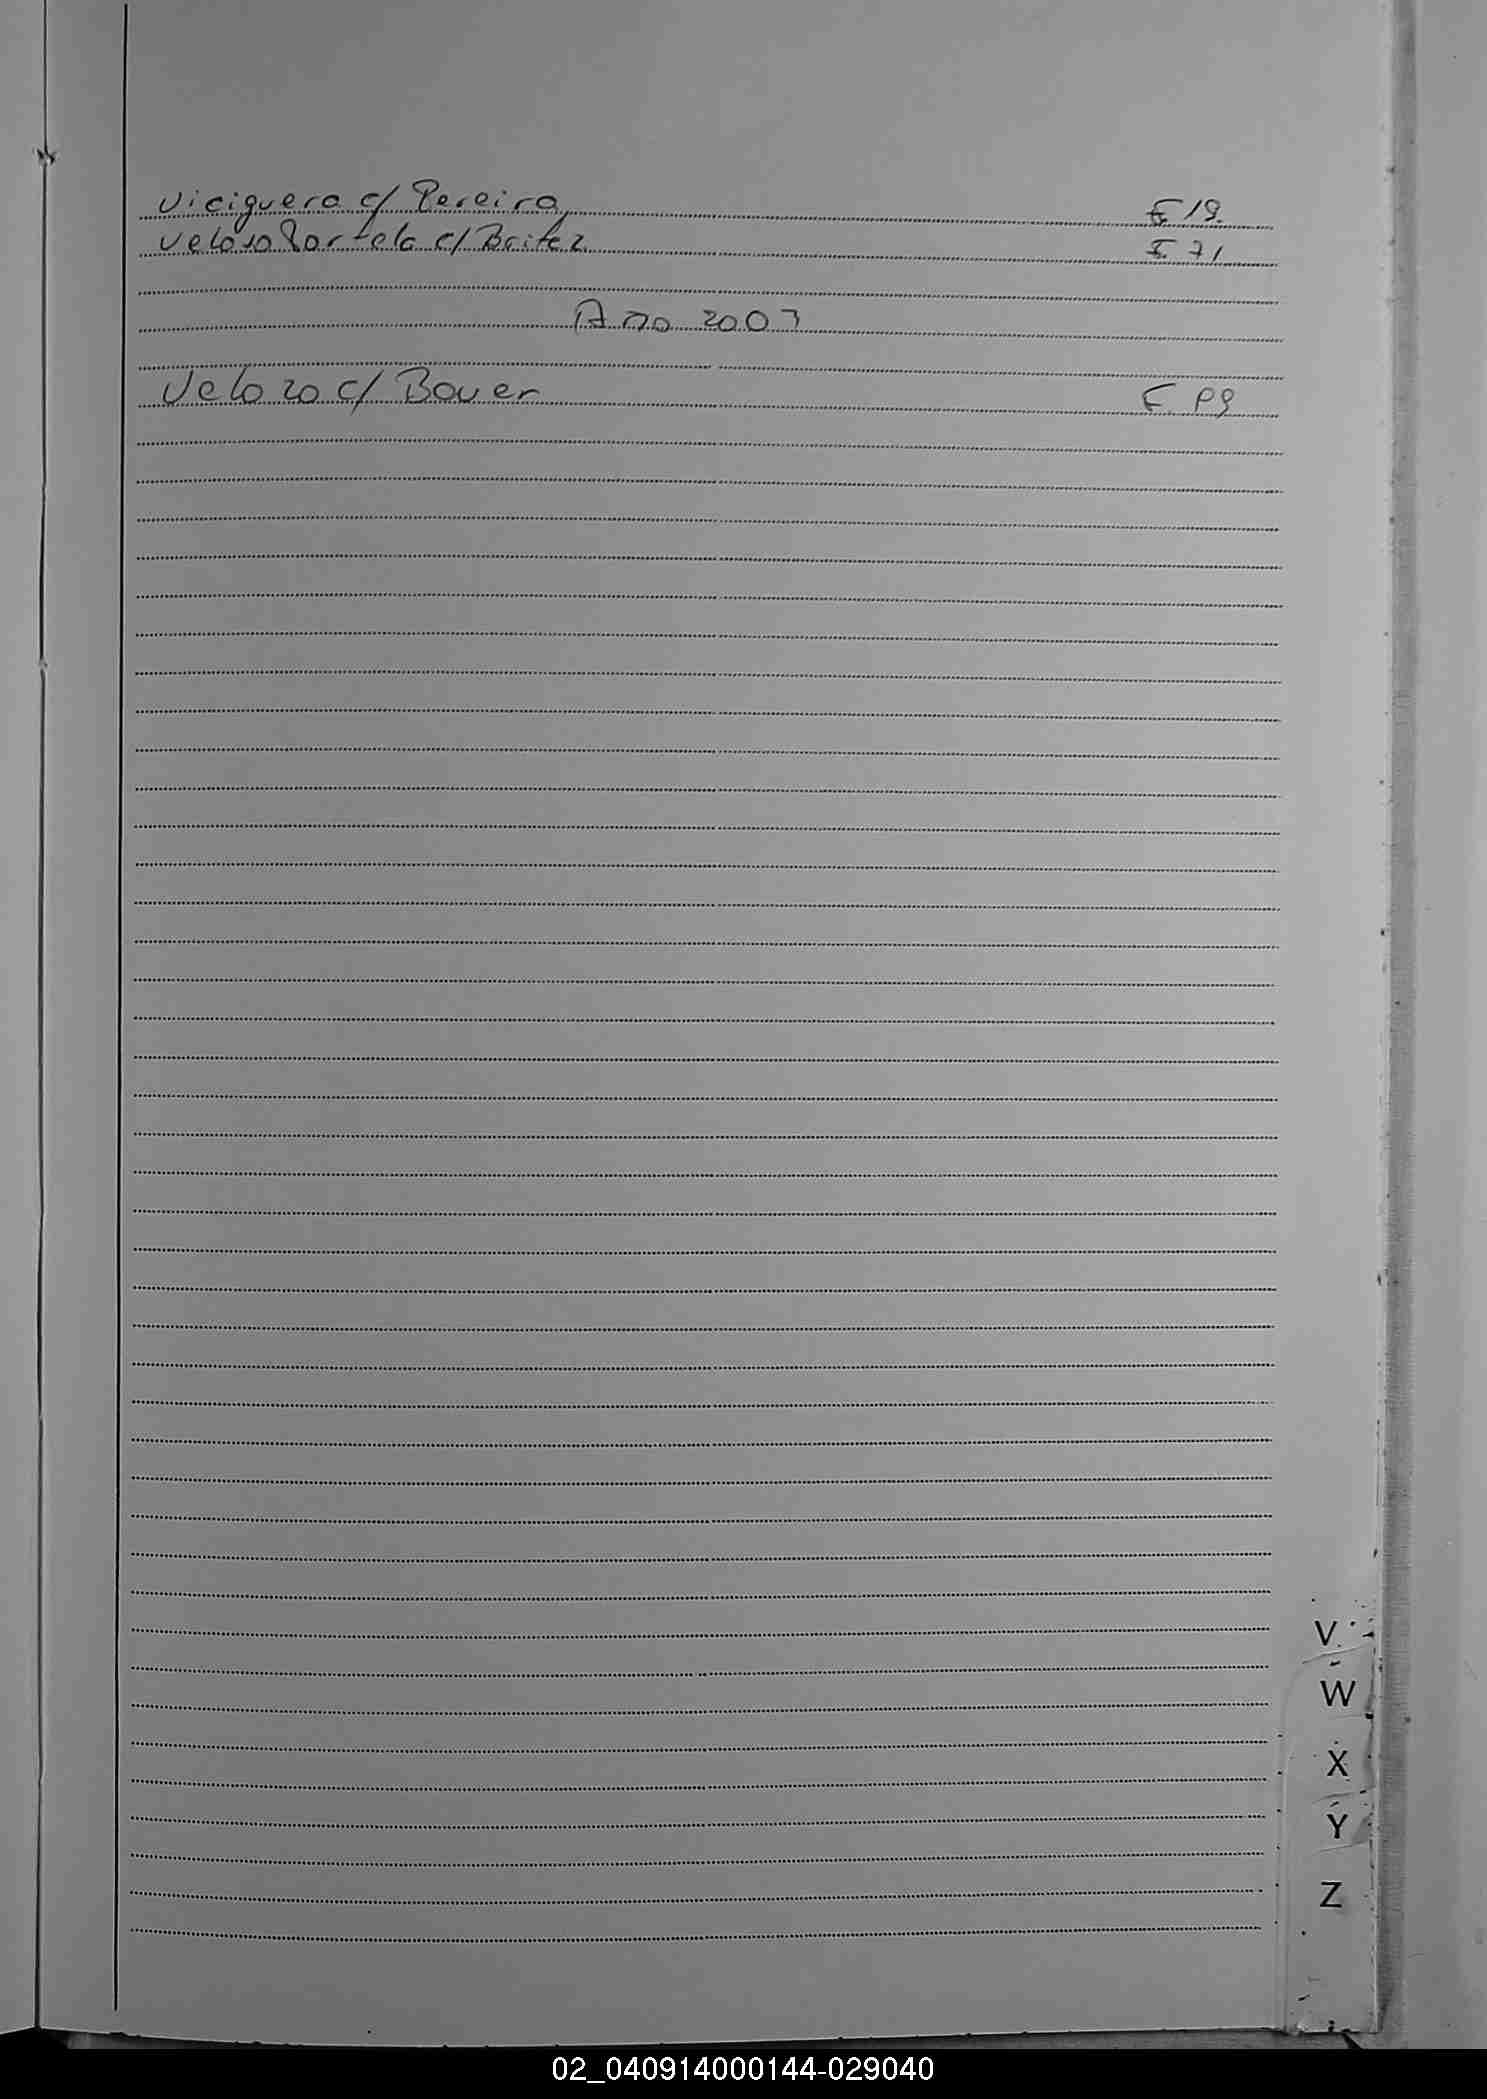 Viciguera c/ Pereira F. 19.
Veloso Portela c/ Britez F. 71
Año 2007
Velozo c/ Bauer F. 89
V
W
X
Y
Z
02_040914000144-029040